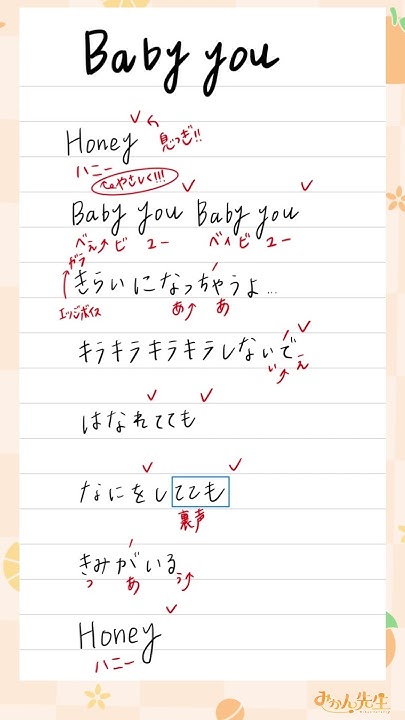 Baby you
Honey 息つぎ!!
ハニー
やさしく!!!
Baby you Baby you
べぇ↑ビ ユー ベイビ ユー
ガラ
きらいになっちゃうよ...
エッジボイス あ↗ あ
キラキラキラキラしないで
い↗え
はなれてても
なにをしてても
裏声
きみがいる
っ あ う↗
Honey
ハニー
みかん先生